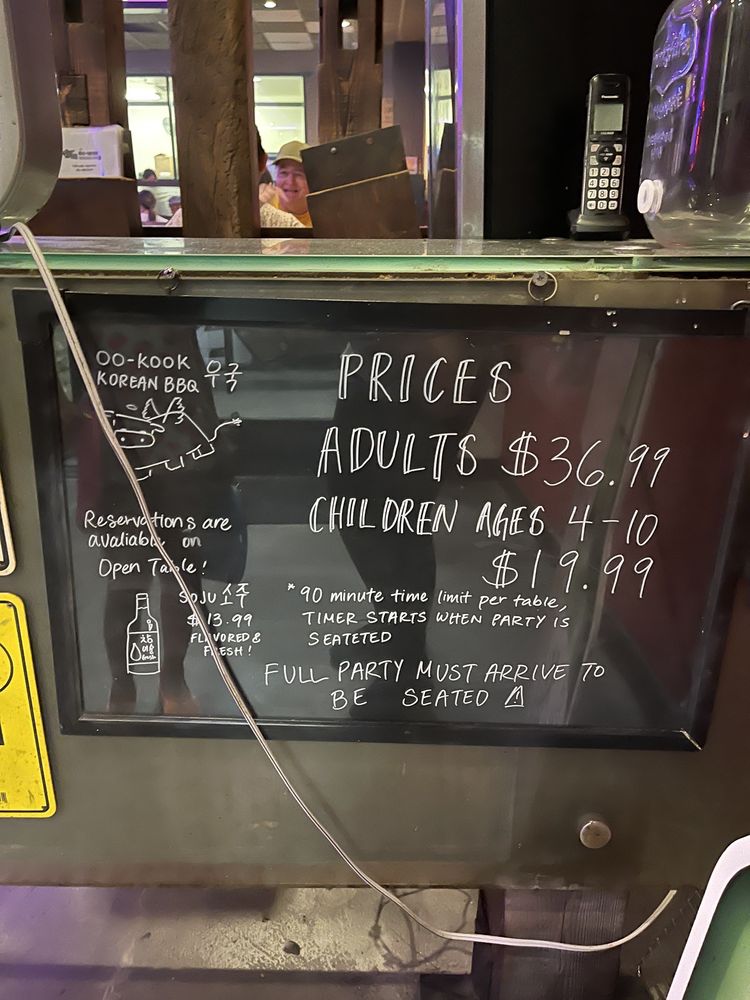 OO-KOOK
KOREAN BBQ 우국
PRICES
ADULTS $36.99
CHILDREN AGES 4-10
$19.99
Reservations are
avaliable on
Open Table!
SOJU 소주
$13.99
FLAVORED &
FRESH!
* 90 minute time limit per table,
TIMER STARTS WHEN PARTY IS
SEATETED
FULL PARTY MUST ARRIVE TO
BE SEATED
Panasonic